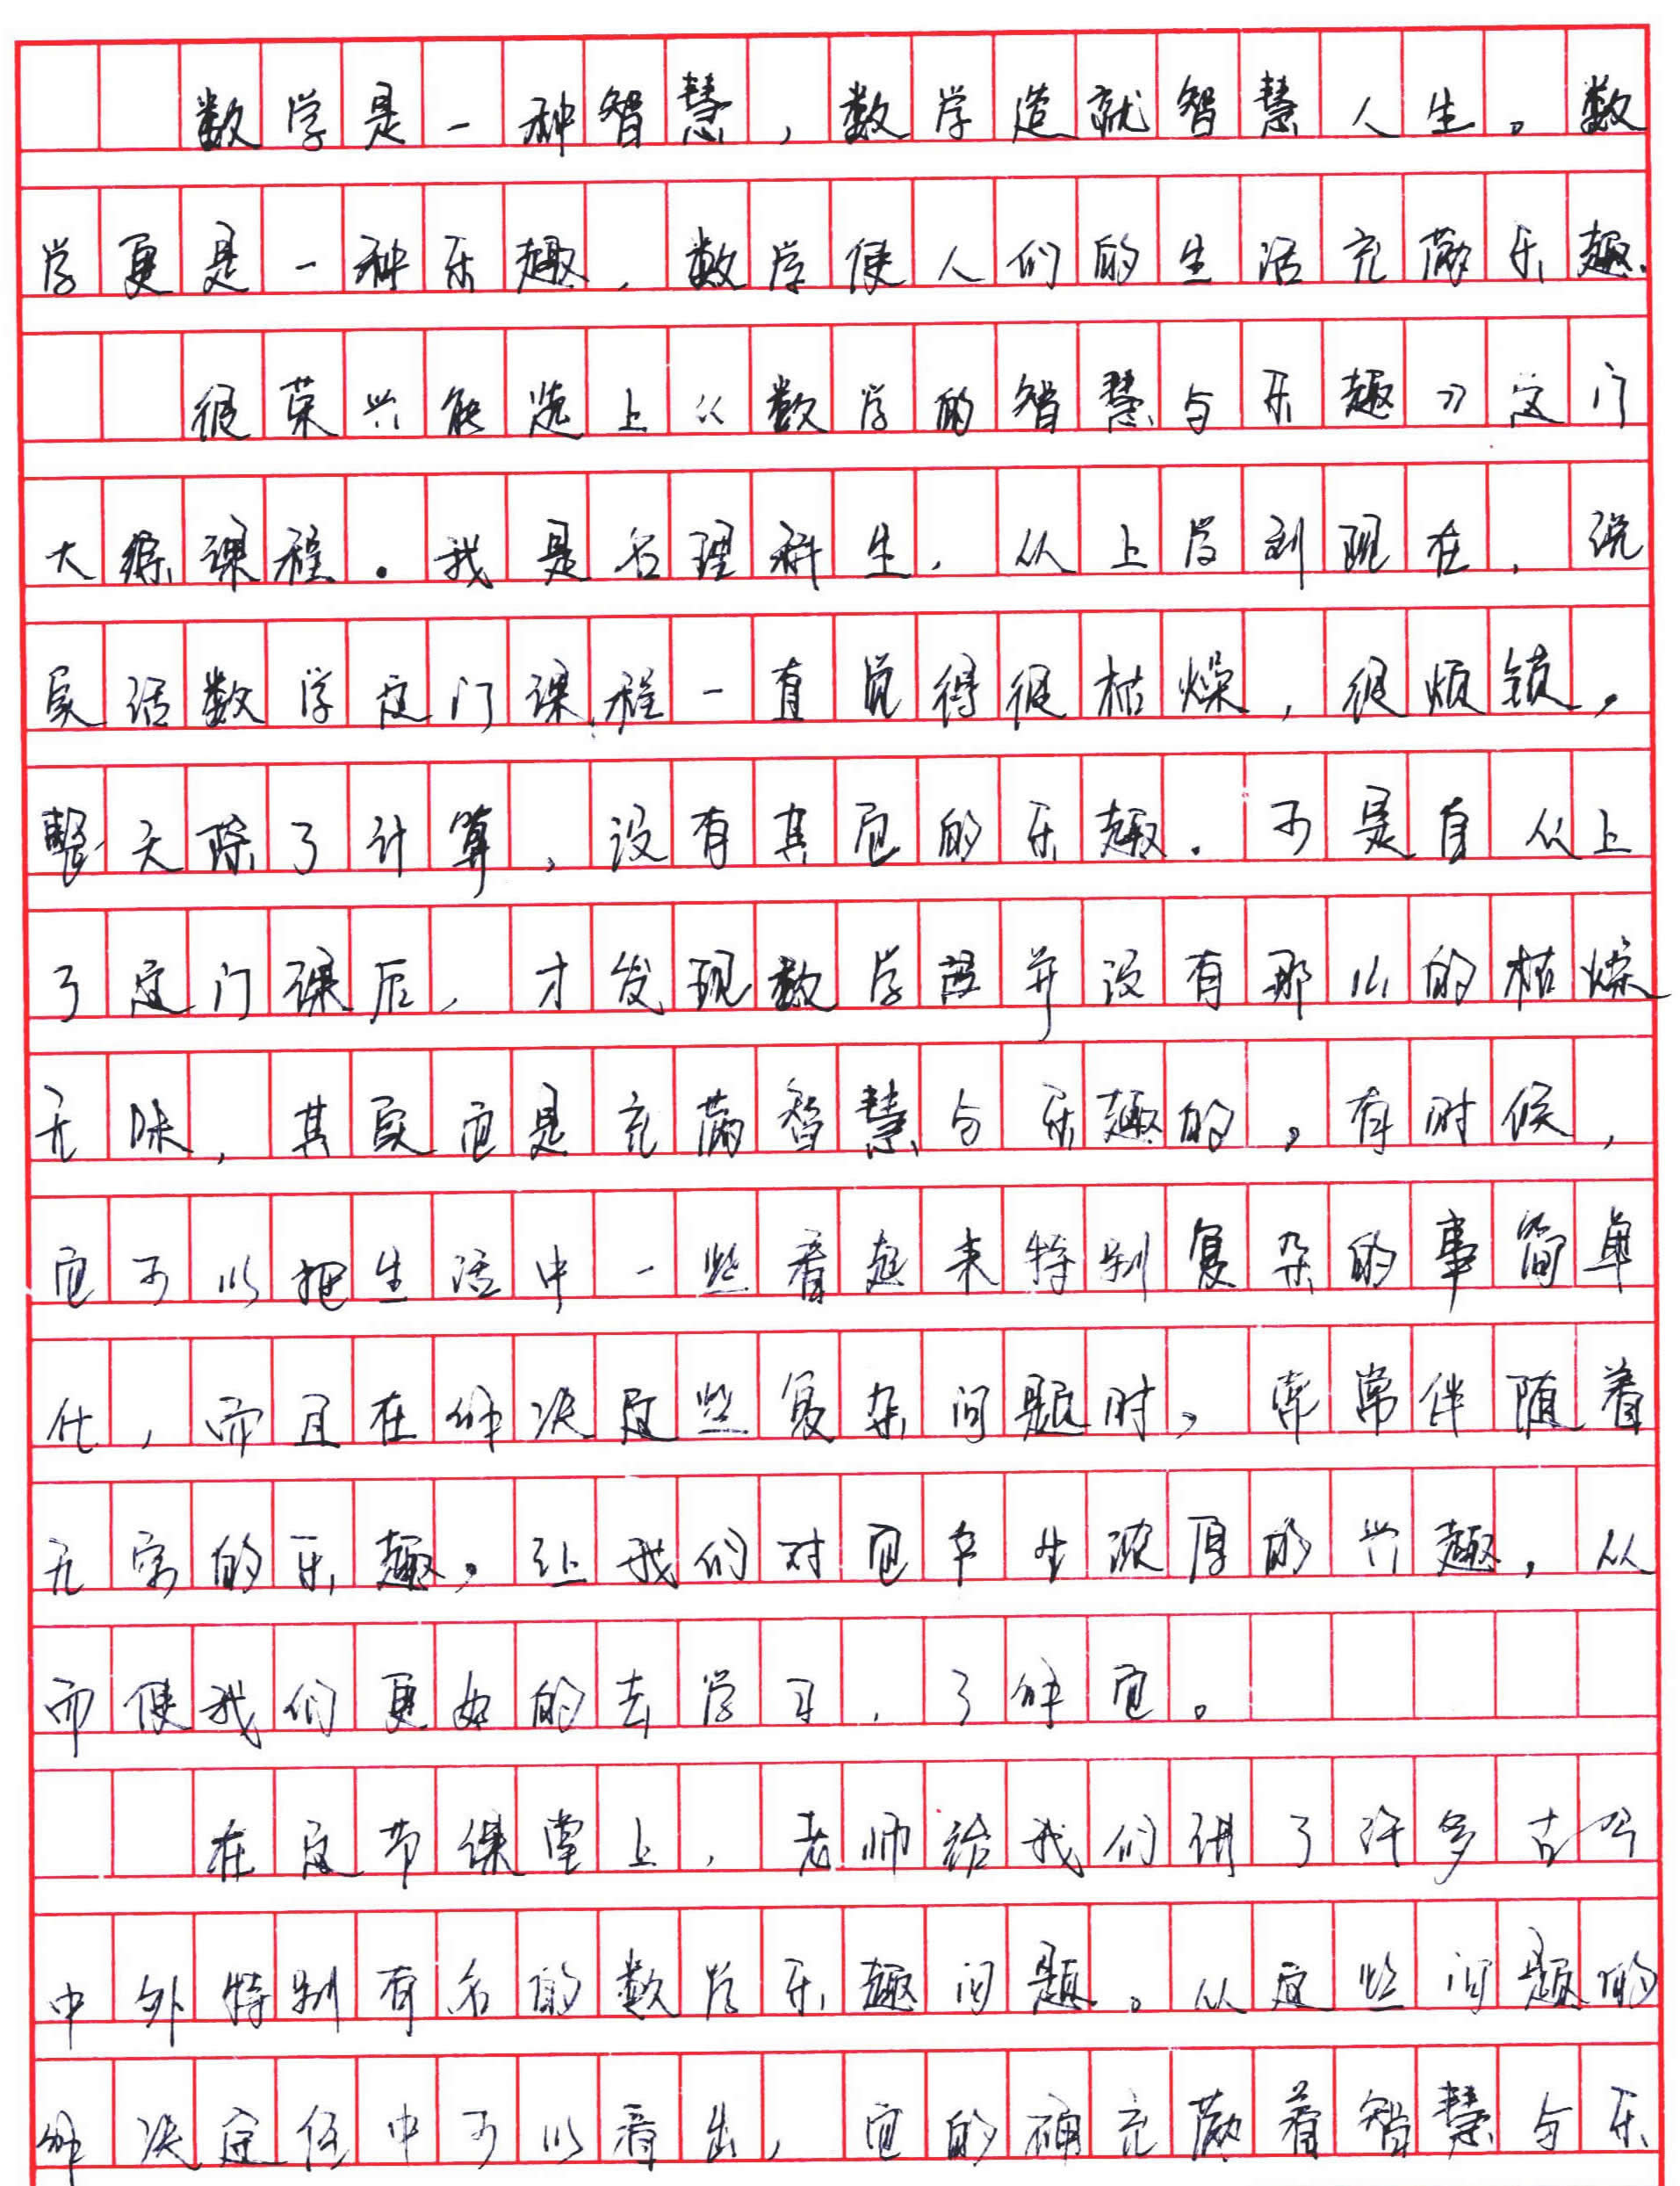 数学是一种智慧,数学造就智慧人生。数
学更是一种乐趣,数学使人们的生活充满乐趣.
很荣兴能选上《数学的智慧与乐趣》这门
大综课程。我是名理科生,从上学到现在,说
实话数学这门课程一直觉得很枯燥,很烦锁,
整天除了计算,没有其它的乐趣.可是自从上
了这门课后,才发现数学并没有那么的枯燥
无味,其实它是充满智慧与乐趣的。有时候,
它可以把生活中一些看起来特别复杂的事简单
化,而且在解决这些复杂问题时,常常伴随着
无穷的乐趣,让我们对它产生浓厚的兴趣,从
而使我们更好的去学习,了解它。
在这节课堂上,老师给我们讲了许多古今
中外特别有名的数学乐趣问题。从这些问题的
解决途径中可以看出,它的确充满着智慧与乐